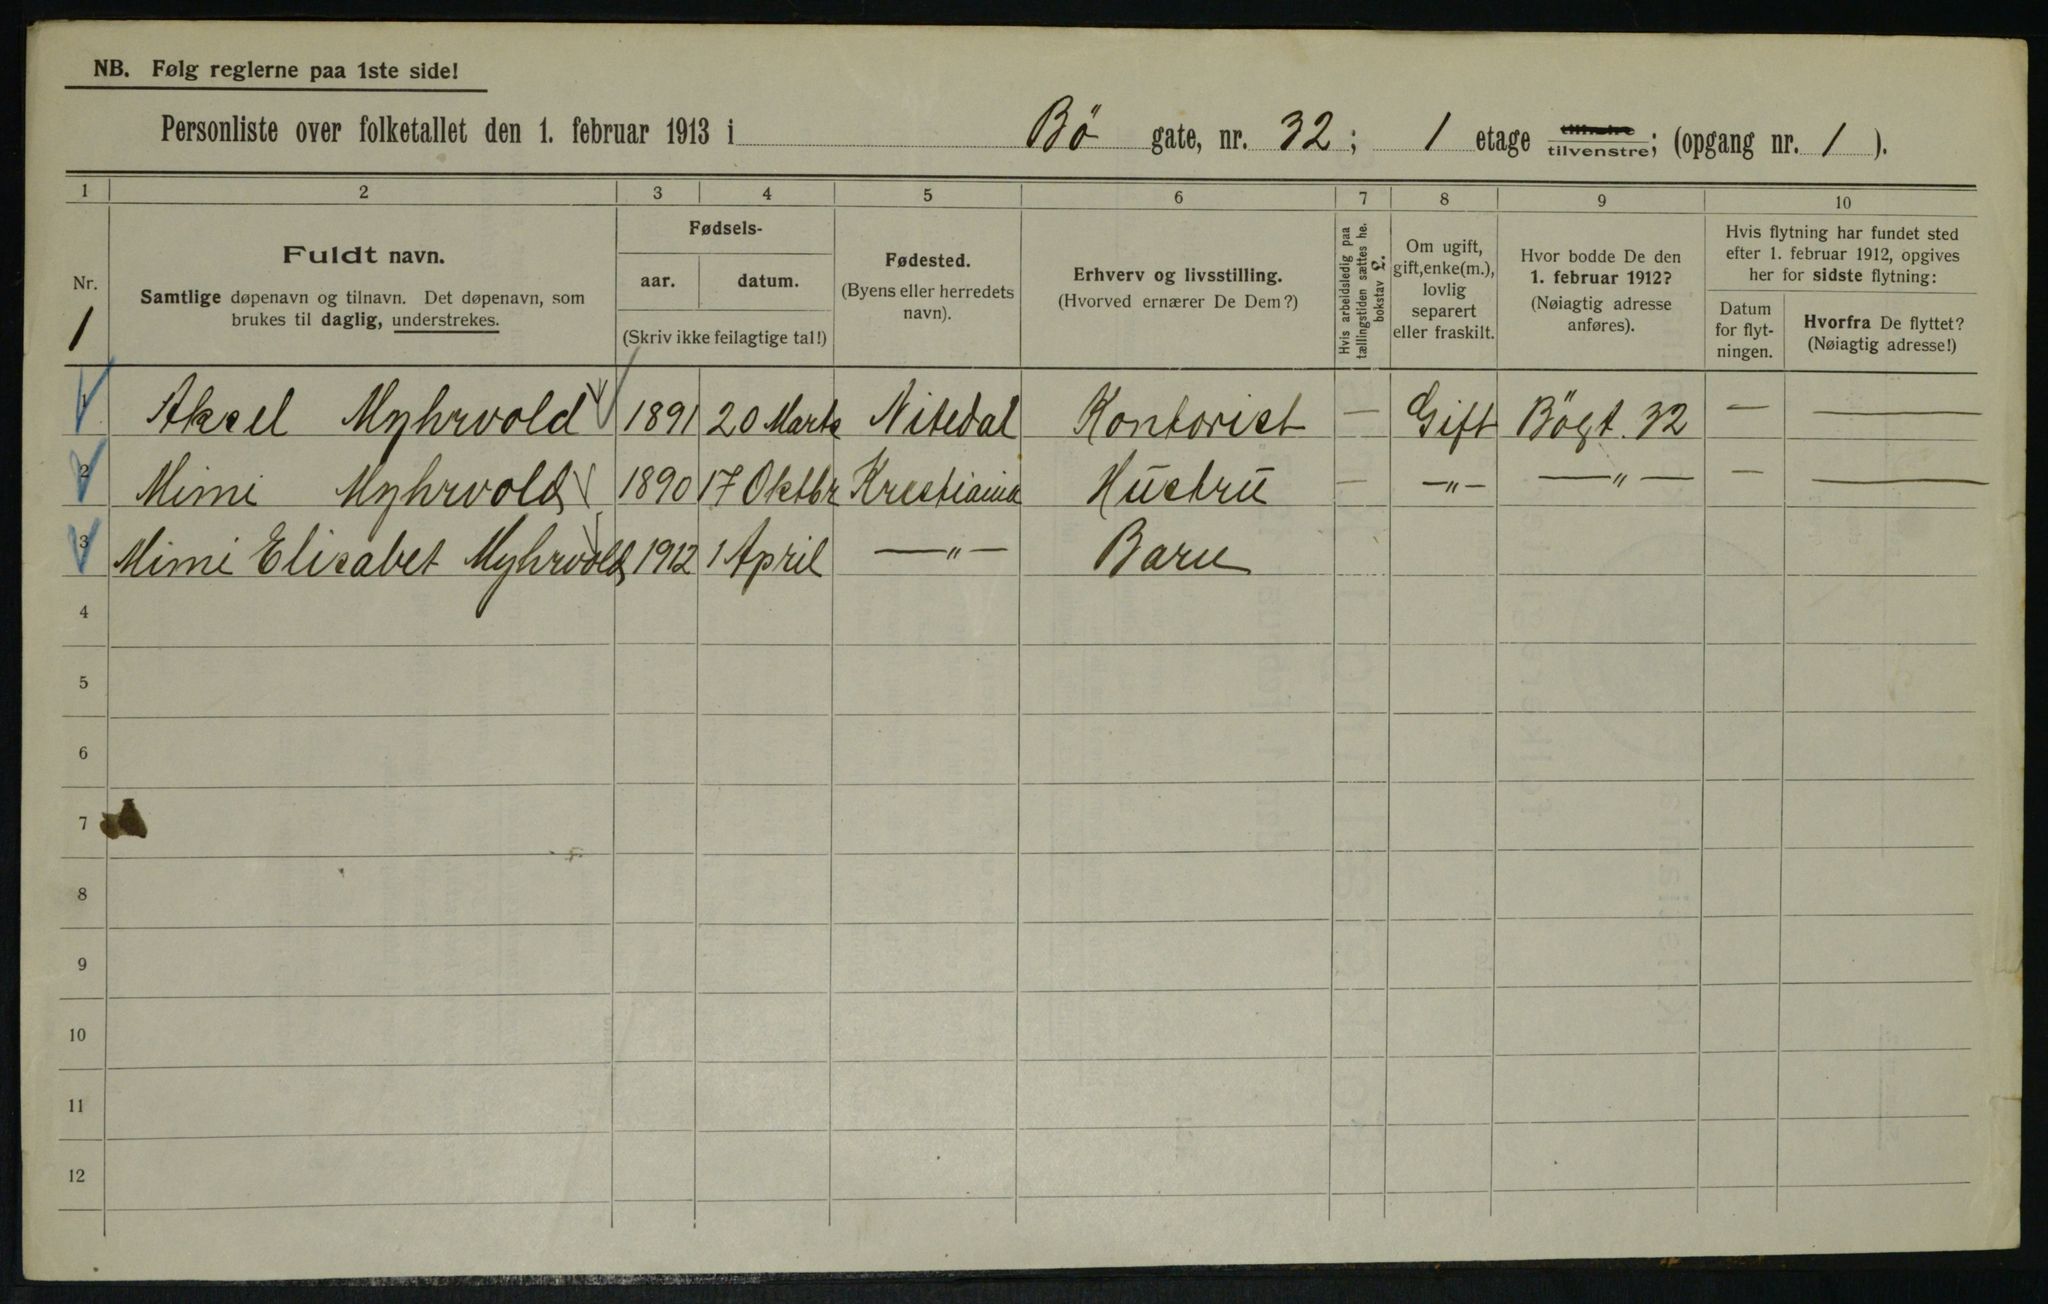 NB. Følg reglerne paa 1ste side!
Personliste over folketallet den 1. februar 1913 i Bö gate, nr. 32; 1 etage tilhøire tilvenstre; (opgang nr. 1).
1 2 3 4 5 6 7 8 9 10
Nr.
1
Fuldt navn.
Samtlige døpenavn og tilnavn. Det døpenavn, som
brukes til daglig, understrekes.
Fødsels-
aar. datum.
(Skriv ikke feilagtige tal!)
Fødested.
(Byens eller herredets
navn).
Erhverv og livsstilling.
(Hvorved ernærer De Dem?)
Hvis arbeidsledig paa
tællingstiden sættes he.
bokstav L.
Om ugift,
gift, enke(m.),
lovlig
separert
eller fraskilt.
Hvor bodde De den
1. februar 1912?
(Nøiagtig adresse
anføres).
Hvis flytning har fundet sted
efter 1. februar 1912, opgives
her for sidste flytning:
Datum
for flyt-
ningen.
Hvorfra De flyttet?
(Nøiagtig adresse!)
1 Aksel Myhrvold 1891 20 Marts Nitedal Kontorist — Gift Bögt. 32 — —
2 Mimi Myhrvold 1890 17 Oktbr Krestiania Hustru — —"— —"— — —
3 Mimi Elisabet Myhrvold 1912 1 April —"— Barn
4
5
6
7
8
9
10
11
12